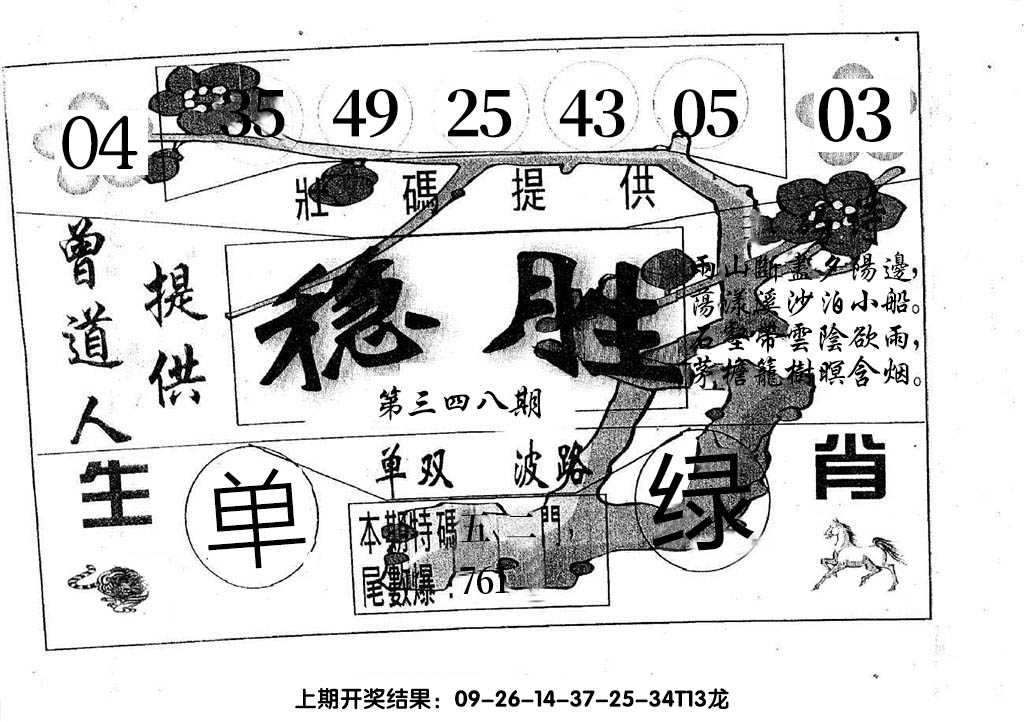 04 35 49 25 43 05 03
壯碼提供
曾道人
提供
稳胜
第三四八期
兩山斷靄夕陽邊，
蕩漾溪沙泊小船。
石壑帶雲陰欲雨，
茅檐籠樹暝含烟。
生肖
单双 波路
单
绿
本期特碼五、二門，
尾數爆：761
上期开奖结果：09-26-14-37-25-34T13龙